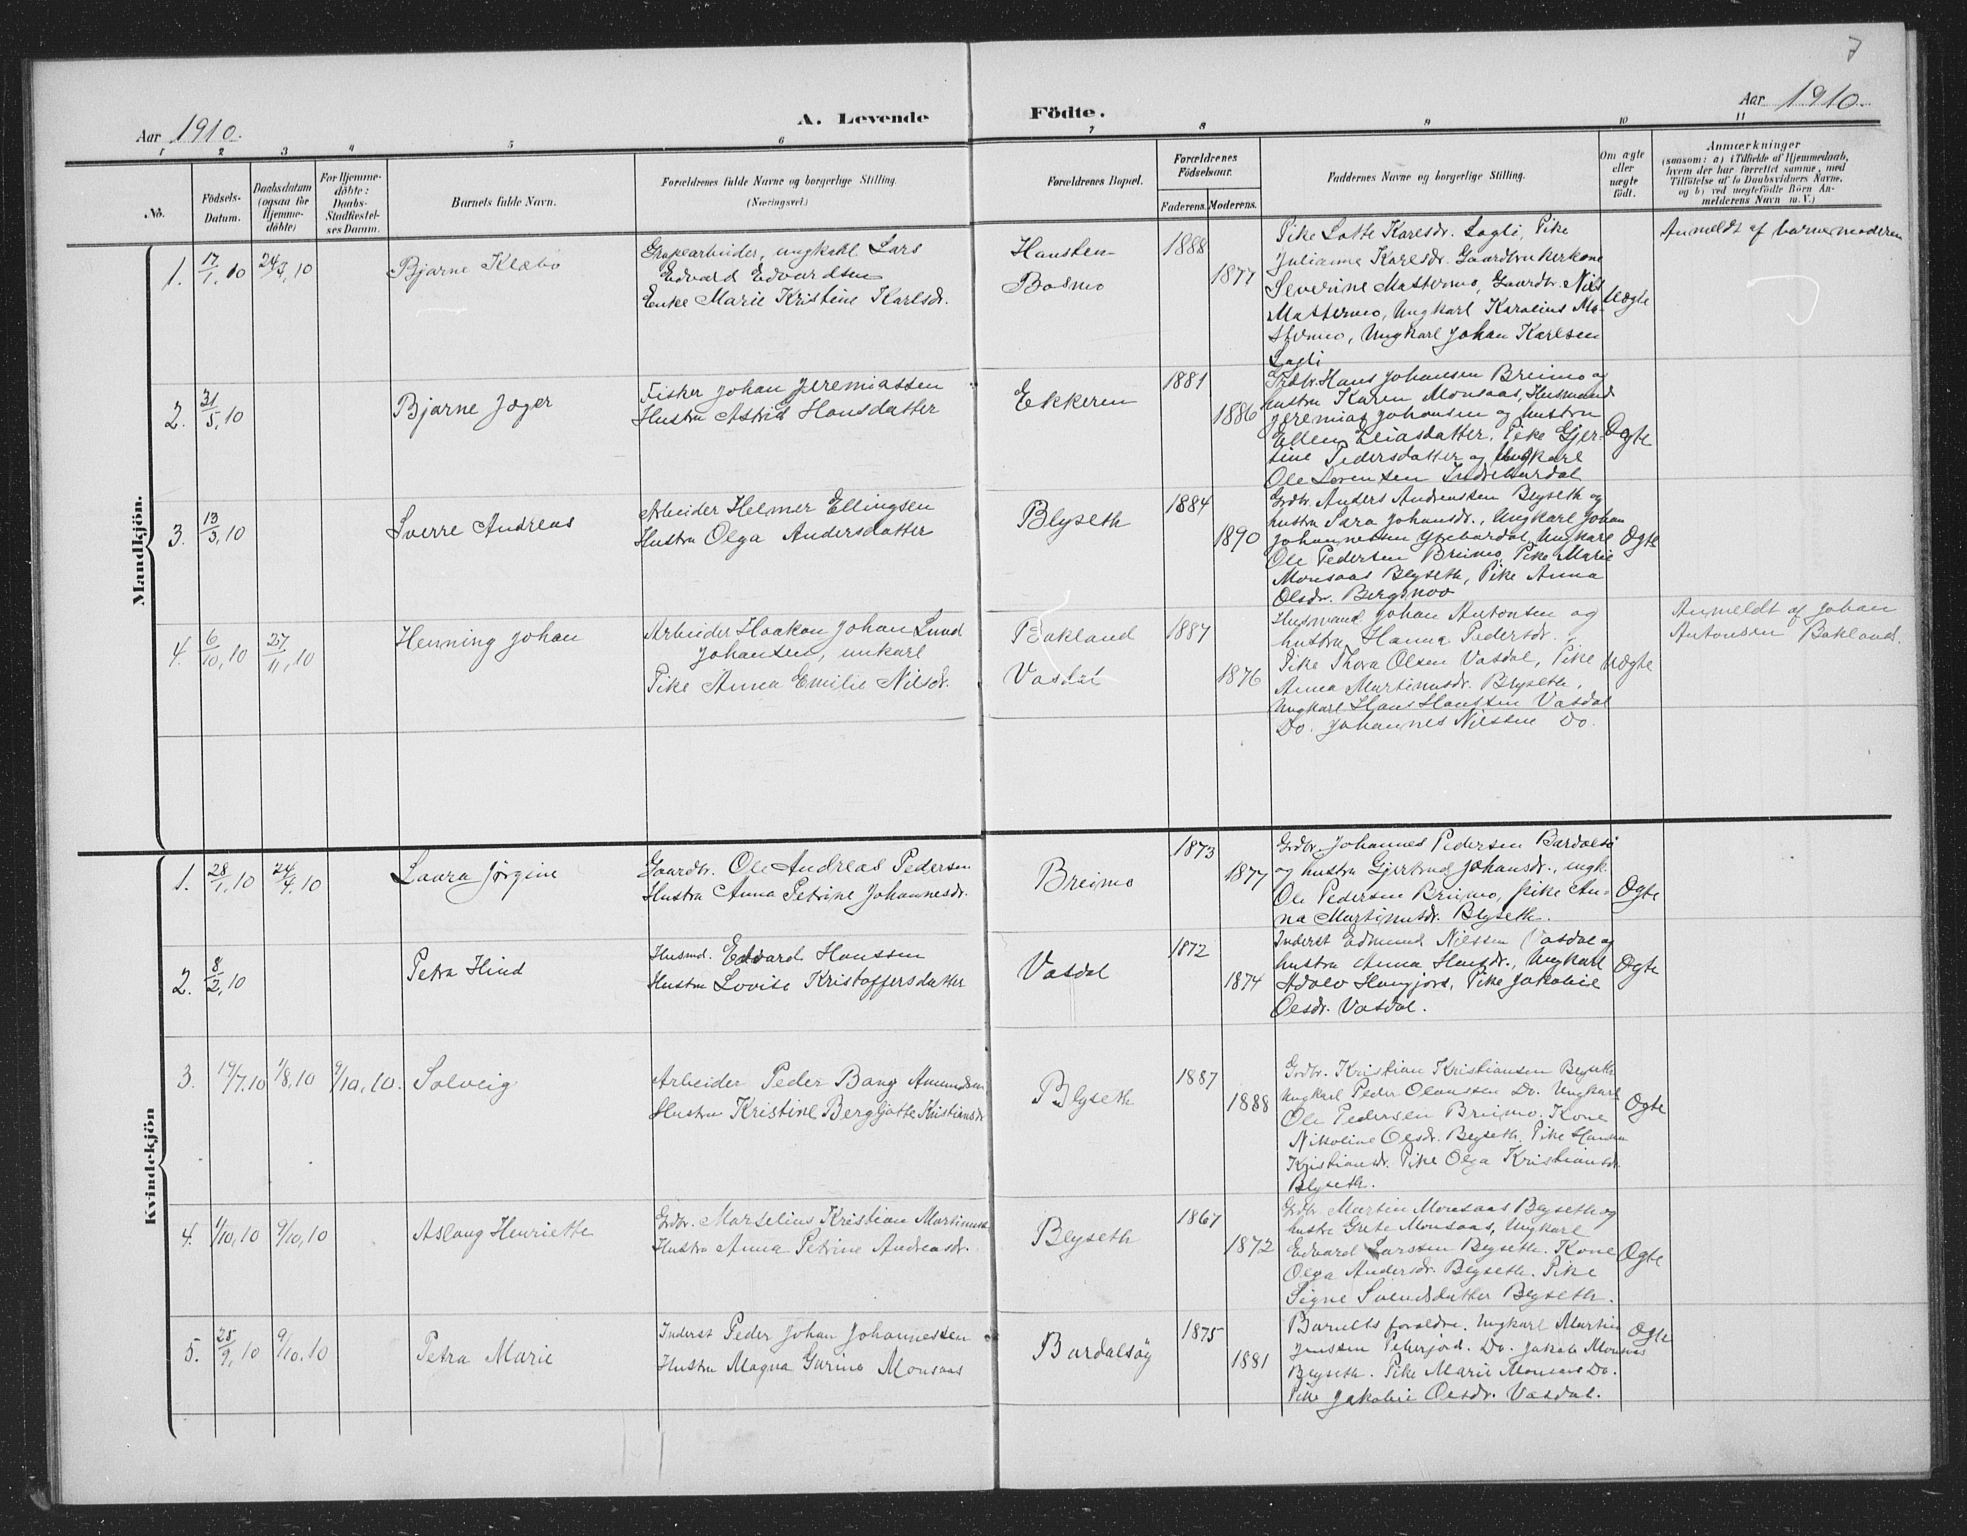 7
Aar 1910.
A. Levende
Födte.
Aar 1910.
1 2 3 4 5 6 7 8 9 10 11
No.
Födsels-
Datum.
Daabsdatum
(ogsaa for
Hjemme-
döbte)
For Hjemme-
döbte:
Daabs-
Stadfæstel-
ses Datum.
Barnets fulde Navn.
Forældrenes fulde Navne og borgerlige Stilling.
(Næringsvei.)
Forældrenes Bopæl.
Forældrenes
Födselsaar.
Faderens. Moderens.
Faddernes Navne og borgerlige Stilling.
Om ægte
eller
uægte
födt.
Anmærkninger
(saasom: a) i Tilfælde af Hjemmedaab,
hvem der har forrettet samme, med
Tilföielse af to Daabsvidners Navne,
og b) ved uægtefödte Börn An-
melderens Navn m. V.)
Mandkjön.
1. 17/1, 10 24/3, 10
Bjarne Klæbo
Edvard Edvardsen
Enke Marie Kristine Karlsdr.
Bosmo
1888
1877
Pike Lotte Karlsdr. Sagli, Pike
Julianne Karlsdr. Gaardbrukerkone
Severine Mastermo, Gaardbr. Nils
Mastermo, Ungkarl Karolius Ma-
stermo, Ungkarl Johan Karlsen
Sagli
Uægte
Anmeldt af barnemoderen
2. 31/5, 10
Bjarne Jæger
Fisker Johan Jeremiassen
Hustru Astrid Hansdatter
Ekkeren
1881
1886
Grdbr. Hans Johansen Breimo og
hustru Karen Monsaas, Husmand
Jeremias Johansen og hustru
Ellen Eliasdatter, Pike Gjer-
tine Pedersdatter og Ungkarl
Ole Sørensen Indrebardal
Ægte
3. 13/3, 10
Sverre Andreas
Arbeider Helmer Ellingsen
Hustru Olga Andersdatter
Blyseth
1884
1890
Grdbr. Anders Andreassen Blyseth og
hustru Sara Johansdr., Ungkarl Johan
Johannessen Ytrebardal, Ungkarl
Ole Pedersen Breimo, Pike Marie
Monsaas Blyseth, Pike Anna
Olsdr. Bergsmoo
Ægte
4. 6/10, 10 27/11, 10
Henning Johan
Arbeider Haakon Johan Lund
Johansen, unkarl
Pike Anna Emilie Nilsdr.
Bakland
Vasdal
1887
1876
Husmand Johan Antonsen og
hustru Hanna Pedersdr.,
Pike Thora Olsen Vasdal, Pike
Anna Martinusdr. Blyseth,
Ungkarl Hans Hanssen Vasdal
Do. Johannes Nilssen Do.
Uægte
Anmeldt af Johan
Antonsen Bakland.
Kvindekjön
1. 28/1, 10 24/4, 10
Laura Jørgine
Gaardbr. Ole Andreas Pedersen
Hustru Anna Petrine Johannesdr.
Breimo
1873
1877
Grdbr. Johannes Pedersen Bardalsö
og hustru Gjertrud Johansdr., ungk.
Ole Pedersen Breimo, pike An-
na Martinusdr. Blyseth.
Ægte
2. 8/2, 10
Petra Hind
Husmd. Edvard Hanssen
Hustru Lovise Kristoffersdatter
Vasdal
1872
1874
Inderst Edmund Nilssen Vasdal og
hustru Anna Hansdr., Ungkarl
Pike Jakobie
Olsdr. Vasdal.
Ægte
3. 19/7.10 1/8, 10 9/10, 10.
Solveig
Arbeider Peder Bang Amundsen
Hustru Kristine Bergljotte Kristiansdr
Blyseth
1887
1888
Grdbr. Kristian Kristiansen Blyseth
Ungkarl Peder Olaussen Do. Ungkarl
Ole Pedersen Breimo. Kone
Nikoline Olsdr. Blyseth. Pike Hanna
Kristiansdr. Pike Olga Kristiansdr.
Blyseth.
Ægte
4. 1/10, 10 9/10, 10
Aslaug Henriette
Grdbr. Marselius Kristian Martinussen
Hustru Anna Petrine Andreasdr.
Blyseth
1867
1872
Grdbr Martin Monsaas Blyseth og
hustru Grete Monsaas, Ungkarl
Edvard Larssen Blyseth. Kone
Olga Andersdr. Blyseth. Pike
Signe Svendsdatter Blyseth.
Ægte
5. 25/9, 10 9/10. 10
Petra Marie
Inderst Peder Johan Johannessen
Hustru Magna Gurine Monsaas
Bardalsöy
1875
1881
Barnets forældre. Ungkarl Martin
Jenssen Do. Jakob Monsaas
Blyseth. Pike Marie Monsaas Do.
Pike Jakobie Olsdr. Vasdal.
Ægte